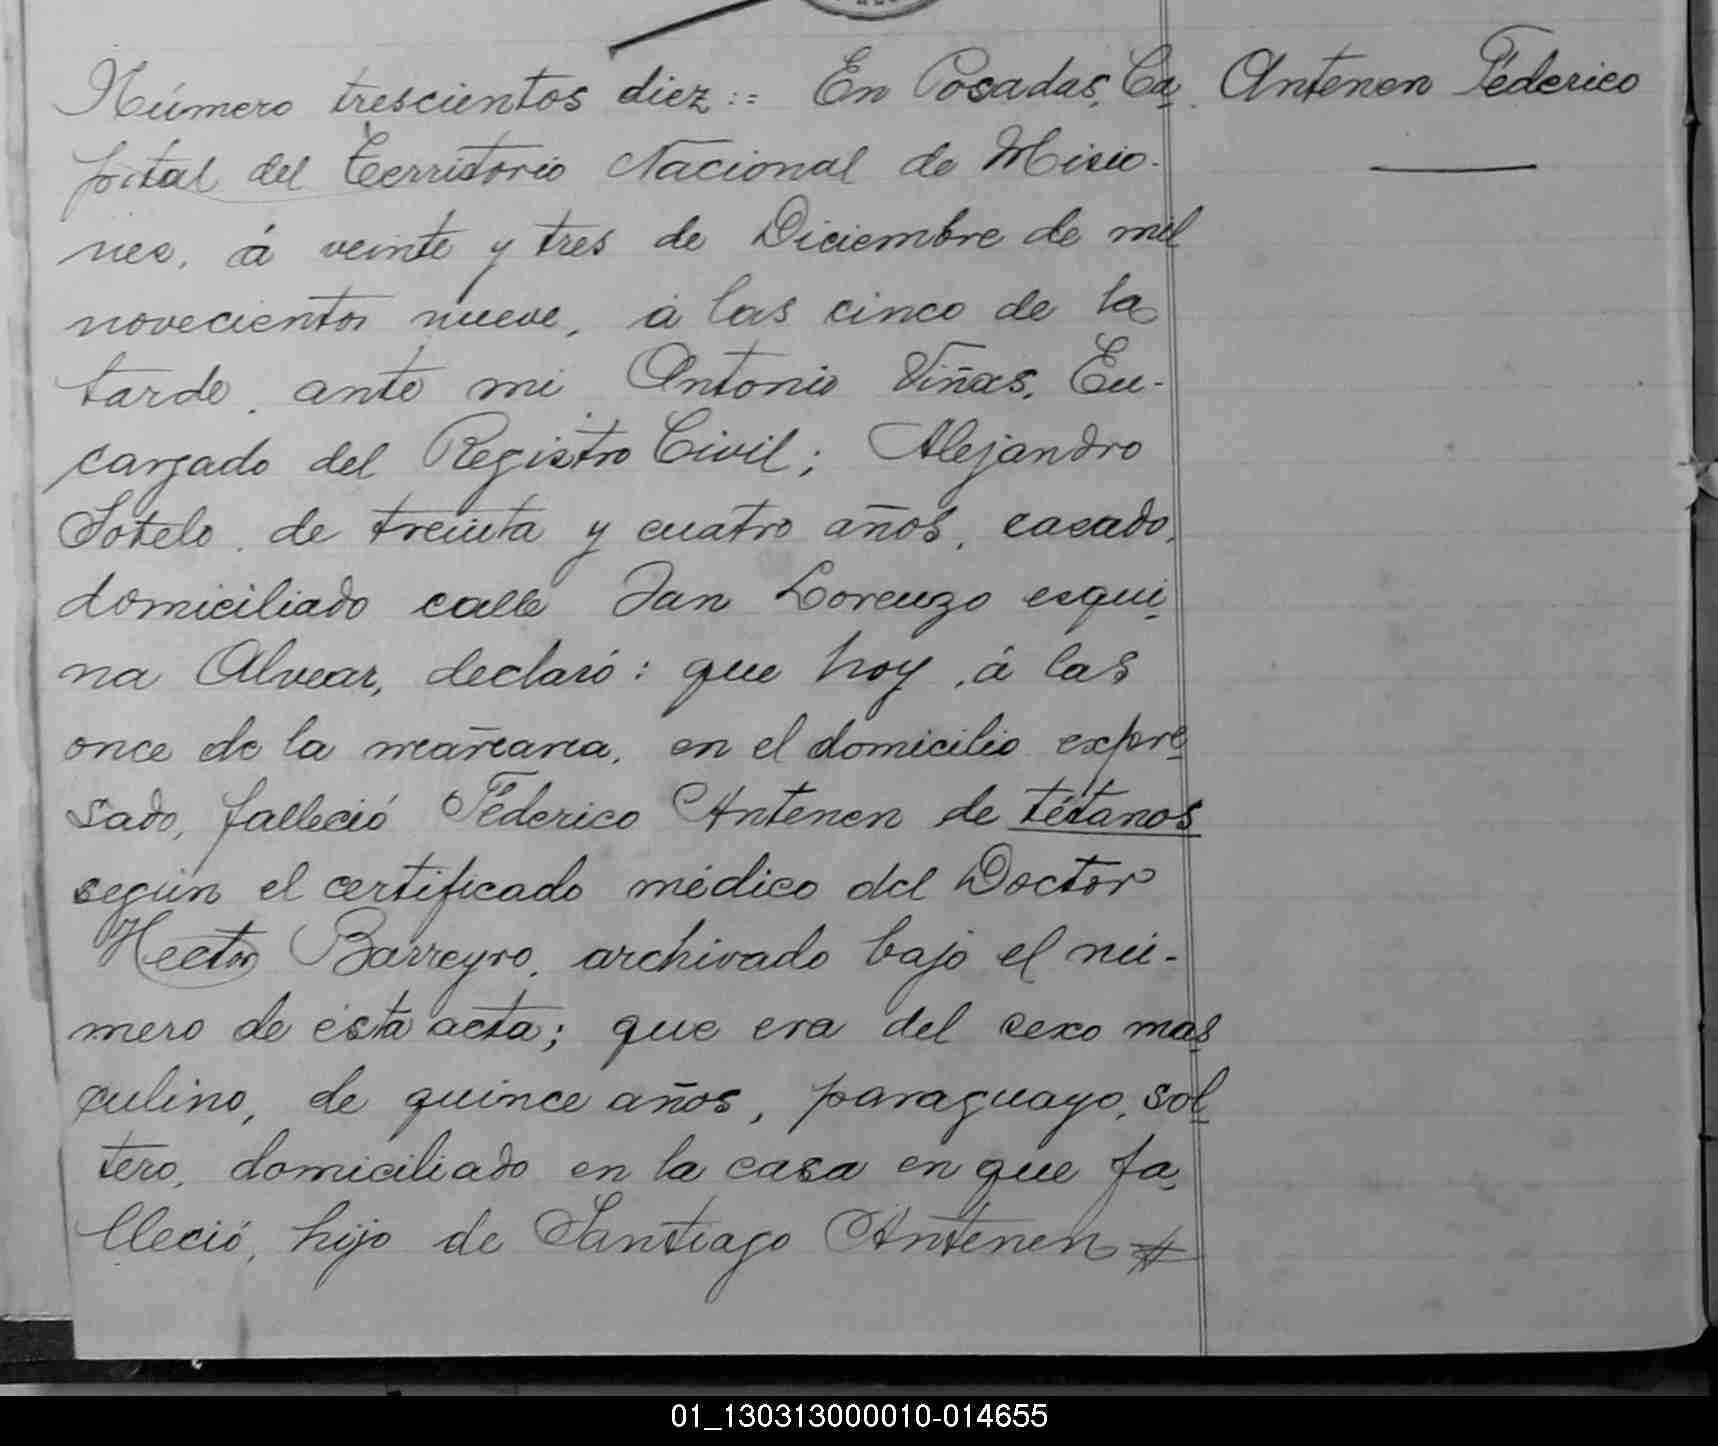 Número trescientos diez := En Posadas, Ca
pital del Territorio Nacional de Misio-
nes, á veinte y tres de Diciembre de mil
novecientos nueve, á las cinco de la
tarde, ante mi Antonio Viñas, En-
cargado del Registro Civil; Alejandro
Sotelo, de treinta y cuatro años, casado,
domiciliado calle San Lorenzo esqui
na Alvear, declaró: que hoy, á las
once de la mañana, en el domicilio expre
sado, falleció Féderico Antenen de tétanos
según el certificado médico del Doctor
Hector Barreyro, archivado bajo el nú-
mero de ésta acta; que era del sexo mas
culino, de quince años, paraguayo, sol
tero, domiciliado en la casa en que fa
lleció, hijo de Santiago Antenen #
Antenen Féderico
01_130313000010-014655